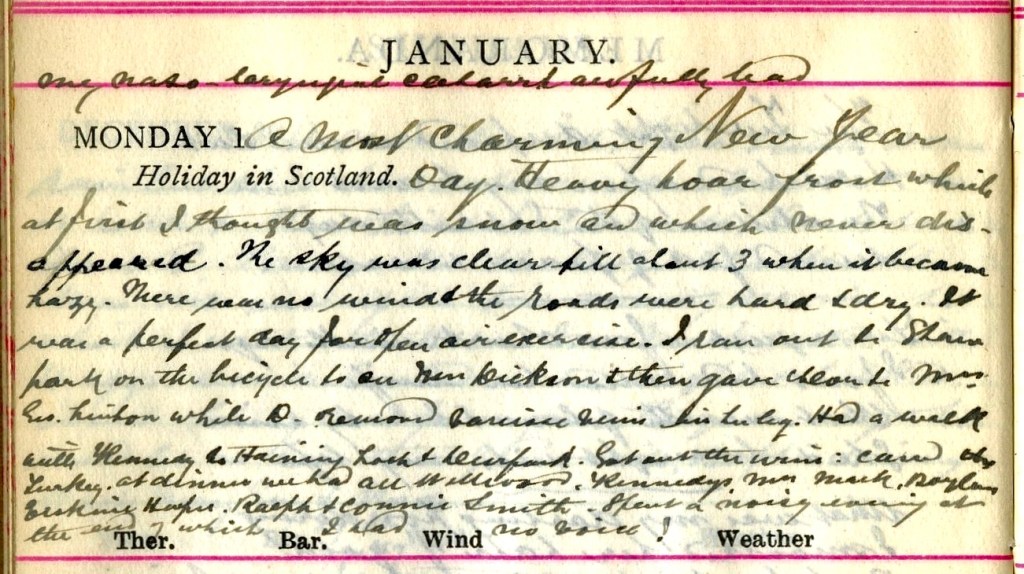 JANUARY.
my naso-laryngeal catarrh awfully bad
MONDAY 1 A most charming New Year
Holiday in Scotland. Day. Heavy hoar frost which
at first I thought was snow and which never dis-
appeared. The sky was clear till about 3 when it became
hazy. There was no wind & the roads were hard & dry. It
was a perfect day for open air exercise. I ran out to
park on the bicycle to Dickson & then gave to Mrs
Geo. while D. removed varicose veins in her leg. Had a walk
with Kennedy to Haining Loch & Deerpark. Got out the wine : carved the
Turkey. at dinner we had all Wellwood. Kennedys Mrs
Erskine Ralph & Connie Smith. Spent a noisy evening at
the end of which I had no voice!
Ther. Bar. Wind Weather